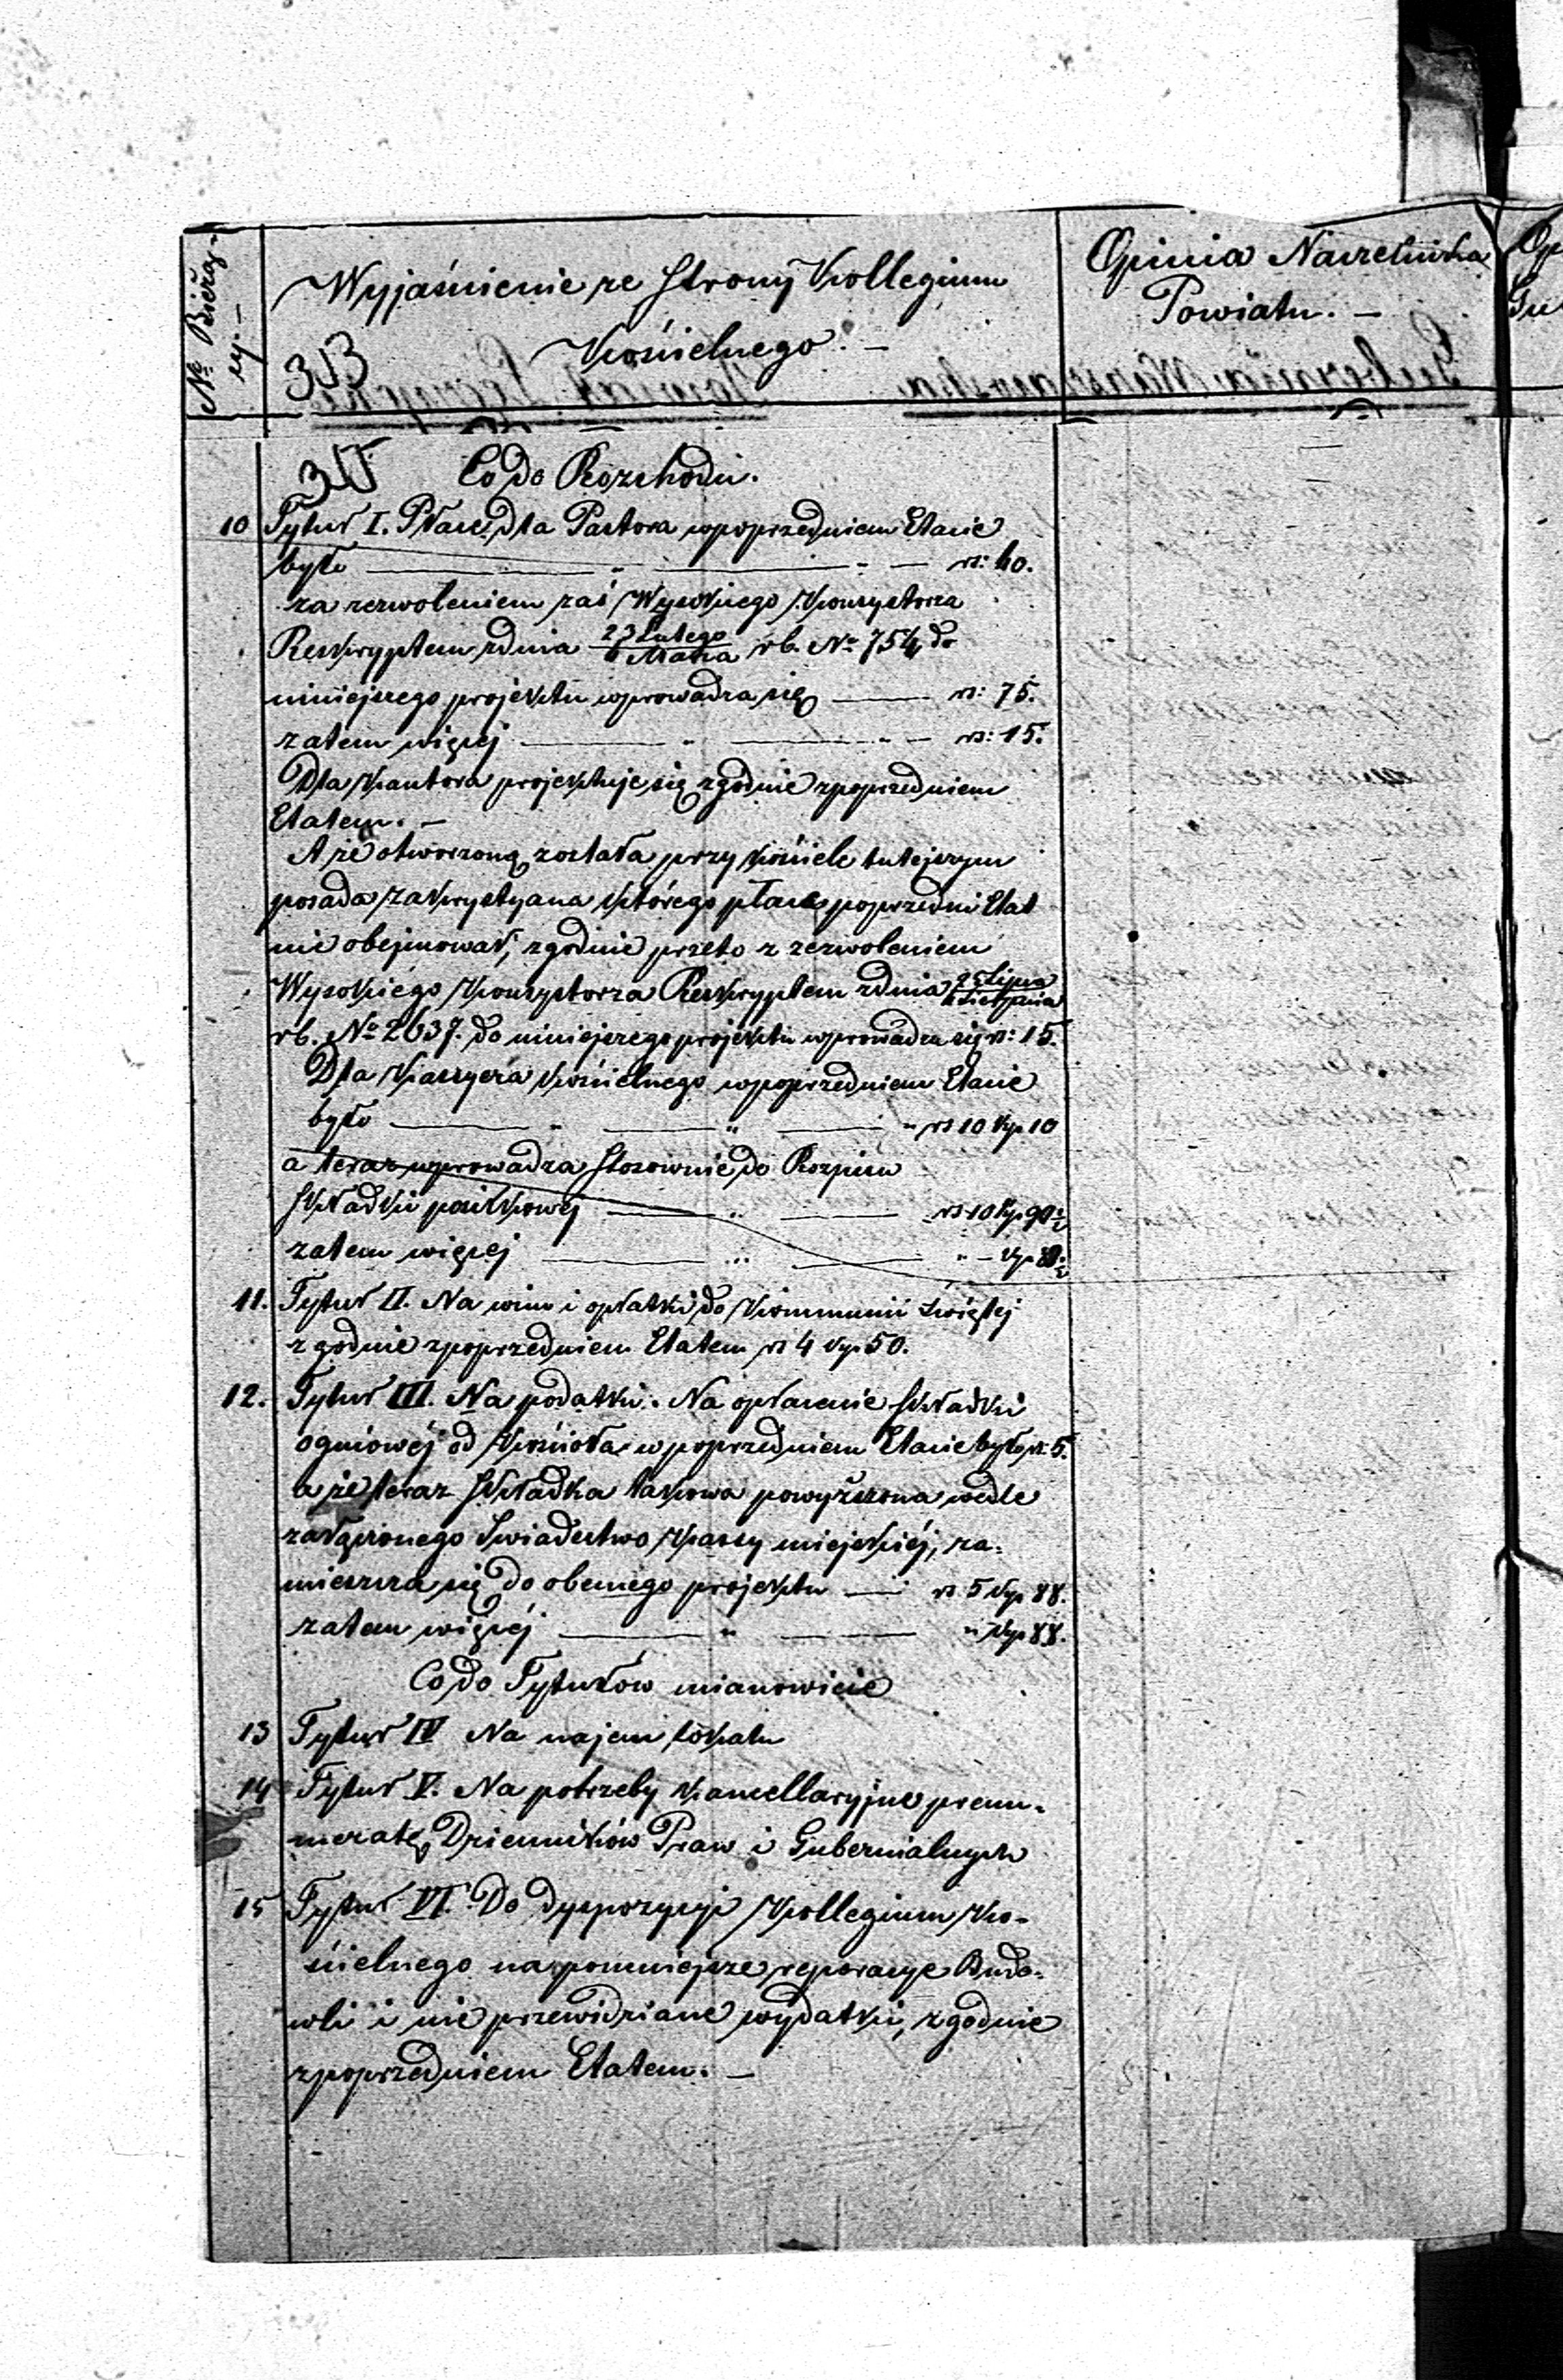 № Bieżą-
cy. —
Wyjaśnienie ze strony Kollegium
Kościelnego. —
Opinia Naczelnika
Powiatu. —
Op
Gu
313
315
Co do Rozchodu.
10 Tytuł I. Płace dla Pastora w poprzedniem Etacie
było — " — " — rs: 60.
za zezwoleniem zaś Wysokiego Konsystorza
Reskryptem z dnia 23 Lutego / 6 Marca r b. № 754 do
niniejszego projektu wprowadza się — rs: 75.
zatem więcej — " — " — rs: 15.
Dla Kantora projektuje się zgodnie z poprzedniem
Etatem. —
A że otworzoną została przy kościele tutejszym
posada zakrystyana którego płace poprzedni Etat
nie obejmował, zgodnie przeto z zezwoleniem
Wysokiego Konsystorza Reskryptem z dnia 25 Lipca / 6 Sierpnia
r b. № 2637. do niniejszego projektu wprowadza się rs: 15.
Dla Kassyera kościelnego w poprzedniem Etacie
było — " — " — " rs 10 kop 10
a teraz wprowadza stosownie do Rozpisu
składki posiłkowej — " — rs 10 kop 90½
zatem więcej — " — " — kop 80½
11. Tytuł II. Na wino i opłatki do Kommunii Świętej
zgodnie z poprzedniem Etatem rs 4 kop 50.
12. Tytuł III. Na podatki. Na opłacenie składki
ogniowéj od Kościoła w poprzedniem Etacie było rs: 5.
a że teraz składka takowa powyższona wedle
załączonego Świadectwo Kassy miejskiéj, za-
mieszcza się do obecnego projektu — rs 5 kop 88.
zatem więcéj — " — " kop 88.
Co do Tytułów mianowicie
13 Tytuł IV Na najem lokalu
14 Tytuł V. Na potrzeby kancellaryjne prenu-
meratę Dzienników Praw i Gubernialnych
15 Tytuł VI. Do dyspozycyi Kollegium Ko-
ścielnego na pomniejsze reporacye Budo-
wli i nie przewidziane wydatki, zgodnie
z poprzedniem Etatem. —